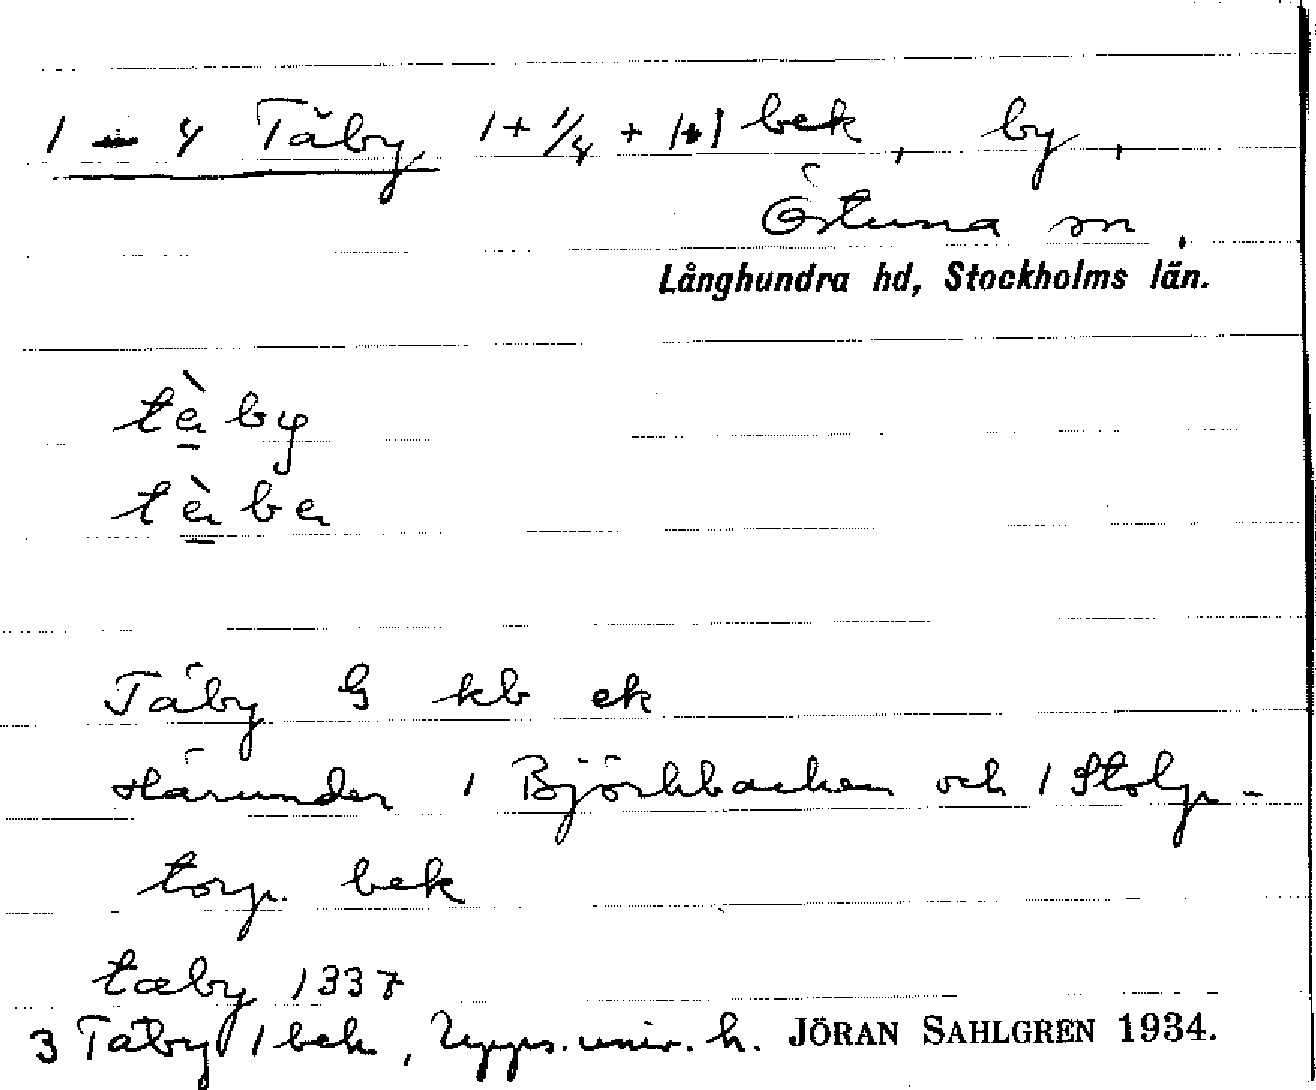 1 – 4 Täby, 1 + 1/4 + 1+1 bek, by,
Östuna sn.
Långhundra hd, Stockholms län.
tè̱by
tè̱be
Täby G kb ek
Härunder 1 Björkbacken och 1 Stolp-
torp. bek
tæby 1337
3 Täby 1 bek, Upps. univ. h. JÖRAN SAHLGREN 1934.